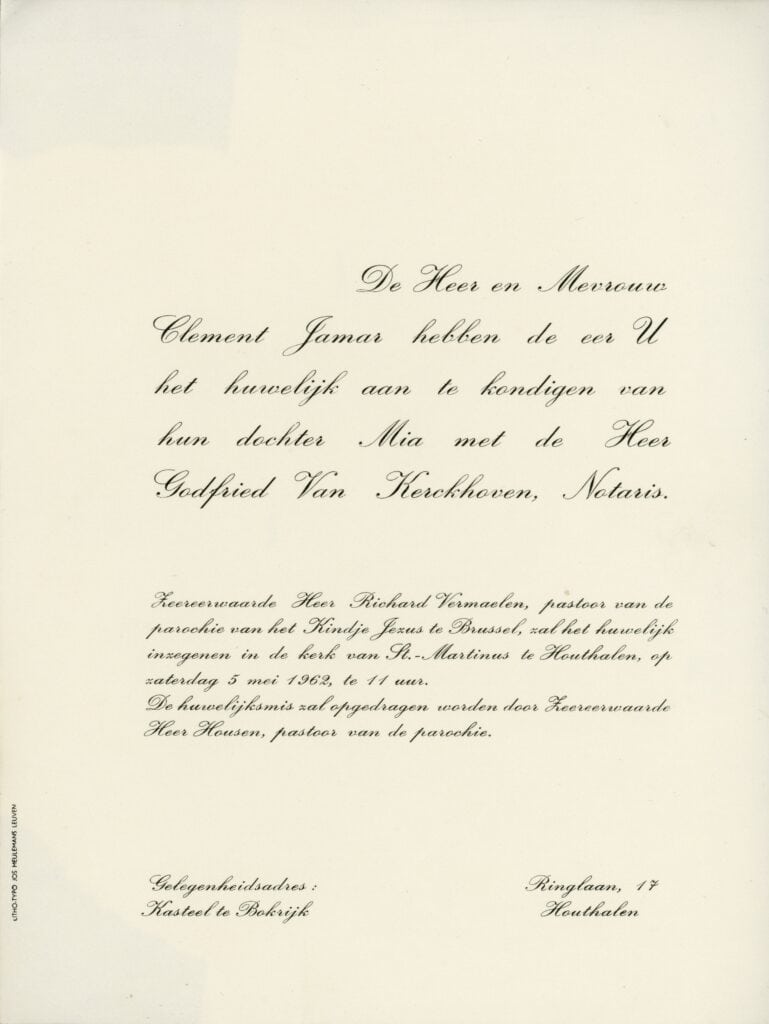 De Heer en Mevrouw
Clement Jamar hebben de eer U
het huwelijk aan te kondigen van
hun dochter Mia met de Heer
Godfried Van Kerckhoven, Notaris.
Zeereerwaarde Heer Richard Vermaelen, pastoor van de
parochie van het Kindje Jezus te Brussel, zal het huwelijk
inzegenen in de kerk van St.-Martinus te Houthalen, op
zaterdag 5 mei 1962, te 11 uur.
De huwelijksmis zal opgedragen worden door Zeereerwaarde
Heer Housen, pastoor van de parochie.
Gelegenheidsadres :
Kasteel te Bokrijk
Ringlaan, 17
Houthalen
LITHO-TYPO JOS MEULEMANS LEUVEN